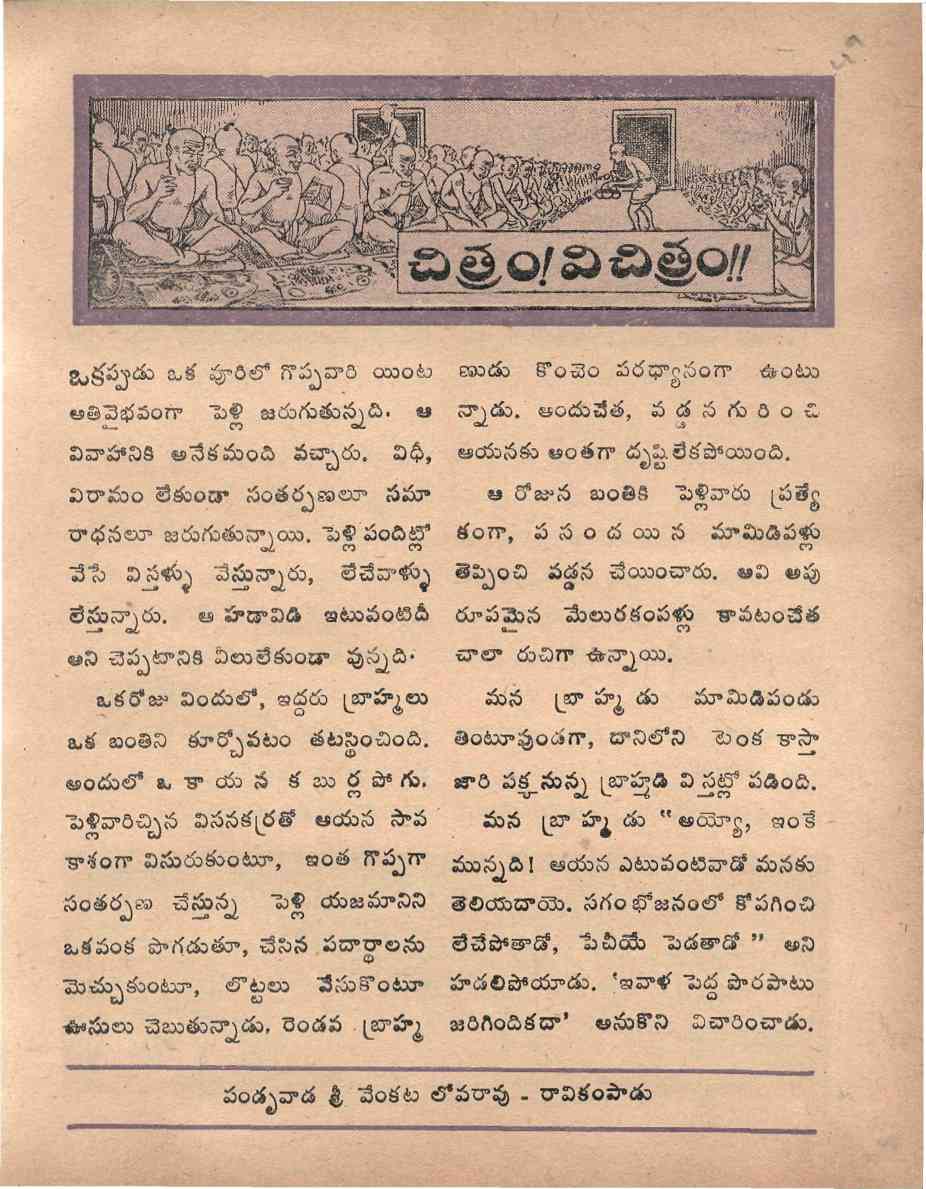 చిత్రం! విచిత్రం!!
ఒకప్పుడు ఒక వూరిలో గొప్పవారి యింట
అతివైభవంగా పెళ్లి జరుగుతున్నది. ఆ
వివాహానికి అనేకమంది వచ్చారు. విధీ,
విరామం లేకుండా సంతర్పణలూ సమా
రాధనలూ జరుగుతున్నాయి. పెళ్లిపందిట్లో
వేసే విస్తళ్ళు వేస్తున్నారు, లేచేవాళ్ళు
లేస్తున్నారు. ఆ హడావిడి ఇటువంటిదీ
అని చెప్పటానికి వీలులేకుండా వున్నది.
ఒకరోజు విందులో, ఇద్దరు బ్రాహ్మలు
ఒక బంతిని కూర్చోవటం తటస్థించింది.
అందులో ఒ కా య న క బు ర్ల పో గు.
పెళ్లివారిచ్చిన విసనకర్రతో ఆయన సావ
కాశంగా విసురుకుంటూ, ఇంత గొప్పగా
సంతర్పణ చేస్తున్న పెళ్లి యజమానిని
ఒకపంక పొగడుతూ, చేసిన పదార్థాలను
మెచ్చుకుంటూ, లొట్టలు వేసుకొంటూ
ఊసులు చెబుతున్నాడు. రెండవ బ్రాహ్మ
ణుడు కొంచెం పరధ్యానంగా ఉంటు
న్నాడు. అందుచేత, వ డ్డ న గు రి ం చి
ఆయనకు అంతగా దృష్టిలేకపోయింది.
ఆ రోజున బంతికి పెళ్లివారు ప్రత్యే
కంగా, ప స ం ద యి న మామిడిపళ్లు
తెప్పించి వడ్డన చేయించారు. అవి అపు
రూపమైన మేలురకంపళ్లు కావటంచేత
చాలా రుచిగా ఉన్నాయి.
మన బ్రా హ్మ డు మామిడిపండు
తింటూవుండగా, దానిలోని టెంక కాస్తా
జారి పక్కనున్న బ్రాహ్మడి విస్తట్లో పడింది.
మన బ్రా హ్మ డు "అయ్యో, ఇంకే
మున్నది! ఆయన ఎటువంటివాడో మనకు
తెలియదాయె. సగంభోజనంలో కోపగించి
లేచేపోతాడో, పేచీయే పెడతాడో" అని
హడలిపోయాడు. 'ఇవాళ పెద్ద పొరపాటు
జరిగిందికదా' అనుకొని విచారించాడు.
పండ్రృవాడ శ్రీ వేంకట లోవరావు - రావికంపాడు